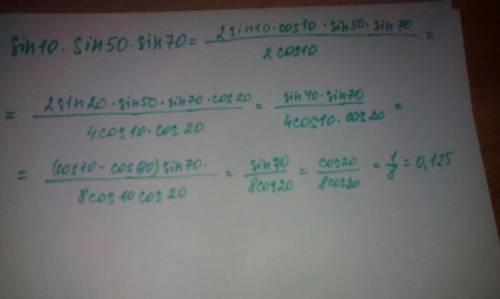 sin10·sin50·sin70 = 2sin10·cos10·sin50·sin70 / 2cos10 =
= 2sin20·sin50·sin70·cos20 / 4cos10·cos20 = sin40·sin70 / 4cos10·cos20 =
= (cos10-cos90)sin70· / 8cos10cos20 = sin70 / 8cos20 = cos20 / 8cos20 = 1/8 = 0,125